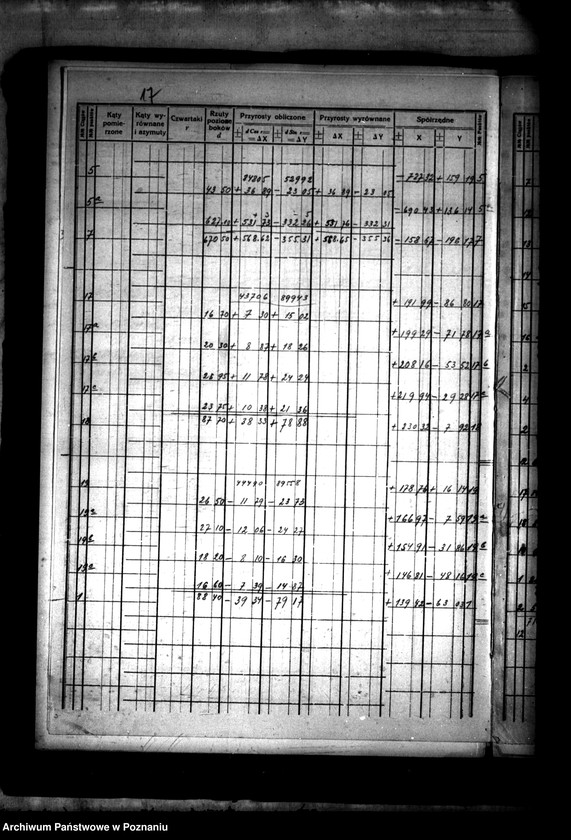 17
Kąty pomierzone
Kąty wyrównane i azymuty
Czwartaki r
Rzuty poziome boków d
Przyrosty obliczone
± d Cos r = = ΔX ± d Sin r = = ΔY
Przyrosty wyrównane
± ΔX ± ΔY
Spółrzędne
± X ± Y
5 52992 - 727 32 + 159 19 5
43 50 + 36 89 - 23 05 + 36 89 - 23 05
5a - 690 43 + 136 14 5a
627 00 + 531 73 - 332 26 + 531 76 - 332 31
7 670 50 + 568.62 - 355 31 + 568.65 - 355 36 - 158 67 - 196 17 7
17 43706 89943 + 191 99 - 86 80 17
16 70 + 7 30 + 15 02
17a + 199 29 - 71 78 17a
20 30 + 8 87 + 18 26
17b + 208 16 - 53 52 17b
26 95 + 11 78 + 24 24
17c + 219 94 - 29 28 17c
23 75 + 10 38 + 21 36
18 87 70 + 38 33 + 78 88 + 230 32 - 7 92 18
19 + 178 76 + 16 14 19
26 50 - 11 79 - 23 73
19a + 166 97 - 7 59 19a
27 10 - 12 06 - 24 27
19b + 154 91 - 31 86 19b
18 20 - 8 10 - 16 30
19c + 146 81 - 48 16 19c
16 60 - 7 39 - 14 87
1 88 40 - 39 34 - 79 17 + 139 42 - 63 03 1
Archiwum Państwowe w Poznaniu